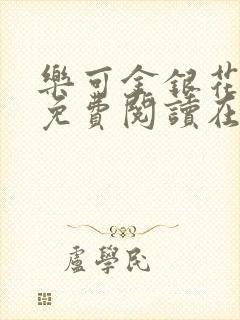 樂可金銀花
免費閱讀在
盧學民